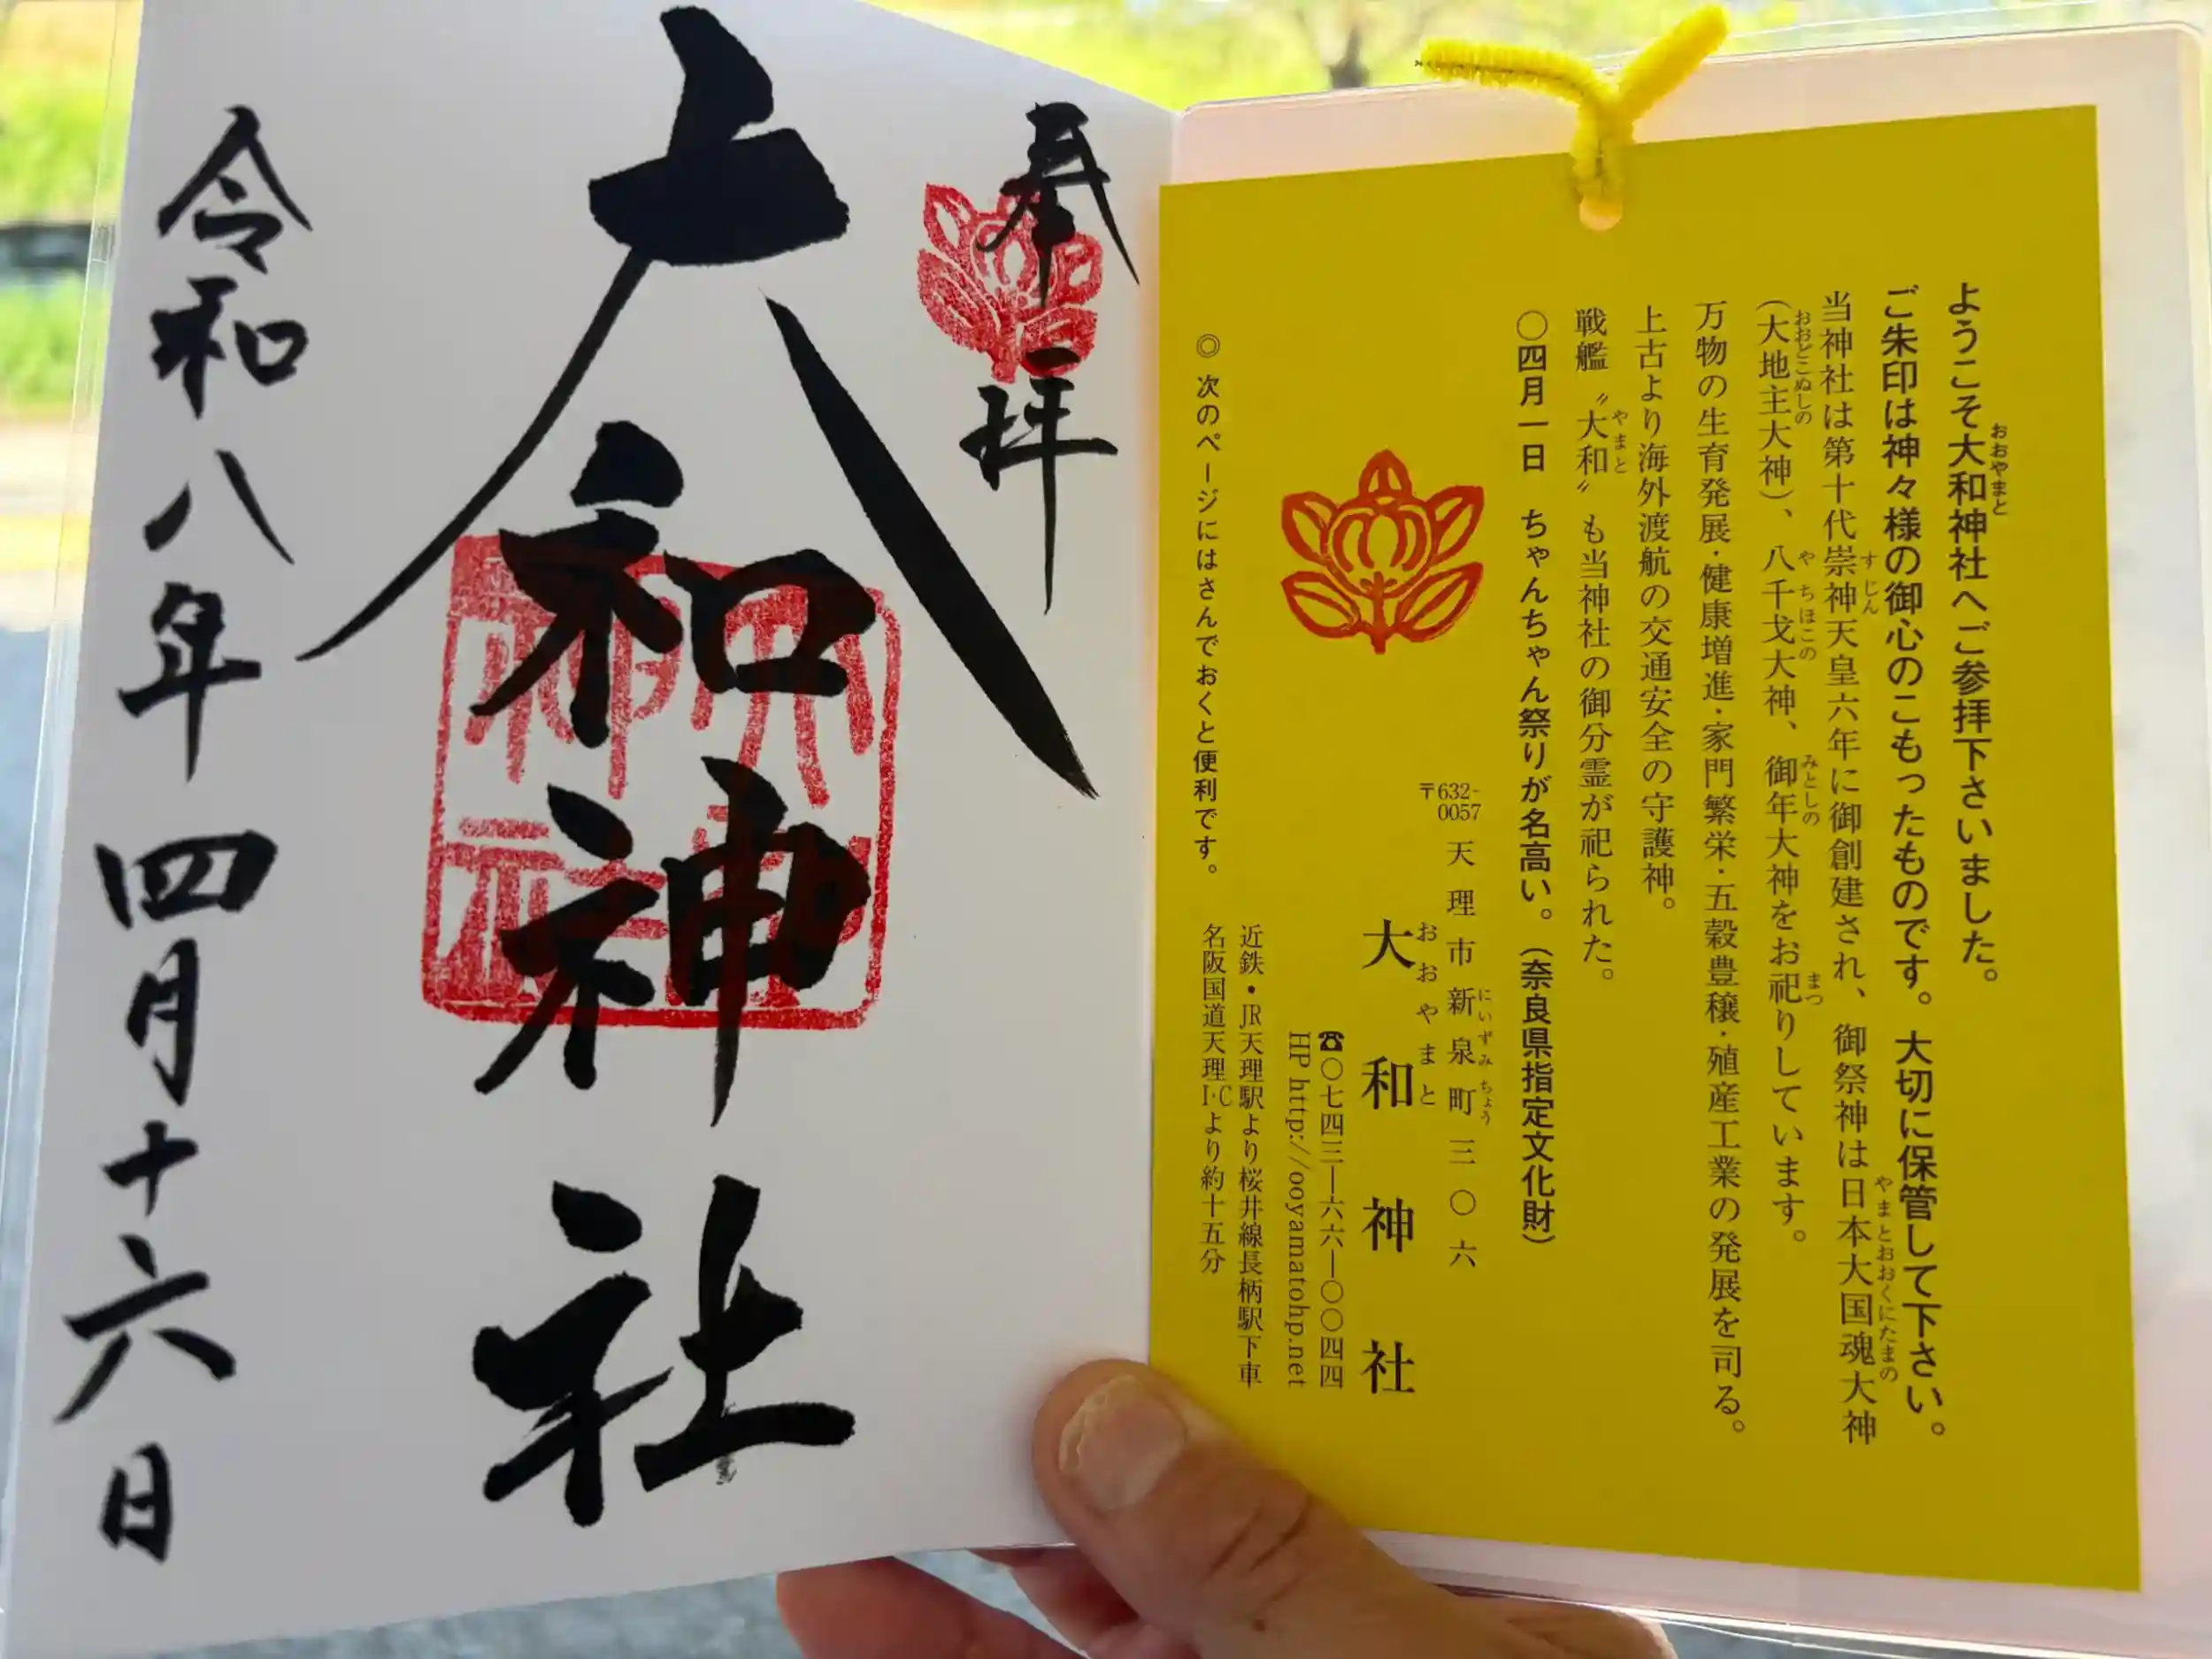 奉拝
大和神社
令和八年四月十六日
ようこそ大和神社へご参拝下さいました。
おおやまと
ご朱印は神々様の御心のこもったものです。大切に保管して下さい。
当神社は第十代崇神天皇六年に御創建され、御祭神は日本大国魂大神
すじん
やまとおおくにたまの
(大地主大神)、八千戈大神、御年大神をお祀りしています。
おおどこぬしの
やちほこの
みとしの
まつ
万物の生育発展・健康増進・家門繁栄・五穀豊穣・殖産工業の発展を司る。
上古より海外渡航の交通安全の守護神。
戦艦〝大和〟も当神社の御分霊が祀られた。
やまと
〇四月一日 ちゃんちゃん祭りが名高い。(奈良県指定文化財)
〒632-0057 天理市新泉町三〇六
にいずみちょう
大和神社
おおやまと
☎〇七四三―六六―〇〇四四
HP http://ooyamatohp.net
近鉄・JR天理駅より桜井線長柄駅下車
名阪国道天理I・Cより約十五分
◎次のページにはさんでおくと便利です。